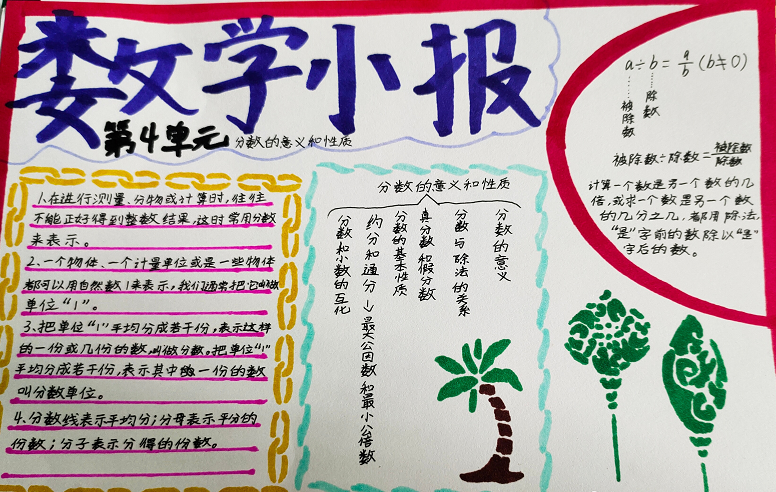 数学小报
第4单元 分数的意义和性质
1.在进行测量、分物或计算时,往往
不能正好得到整数结果,这时常用分数
来表示。
2.一个物体、一个计量单位或是一些物体
都可以用自然数1来表示,我们通常把它叫做
单位“1”。
3、把单位“1”平均分成若干份,表示这样
的一份或几份的数,叫做分数。把单位“1”
平均分成若干份,表示其中一份的数
叫分数单位。
4.分数线表示平均分;分母表示平分的
份数;分子表示分得的份数。
分数的意义和性质
分数的意义
分数与除法的关系
真分数和假分数
分数的基本性质
约分和通分→最大公因数和最小公倍数
分数和小数的互化
a÷b=a/b(b≠0)
被除数
除数
被除数÷除数=被除数/除数
计算一个数是另一个数的几
倍,或求一个数是另一个数
的几分之几,都用除法,
“是”字前的数除以“是”
字后的数。